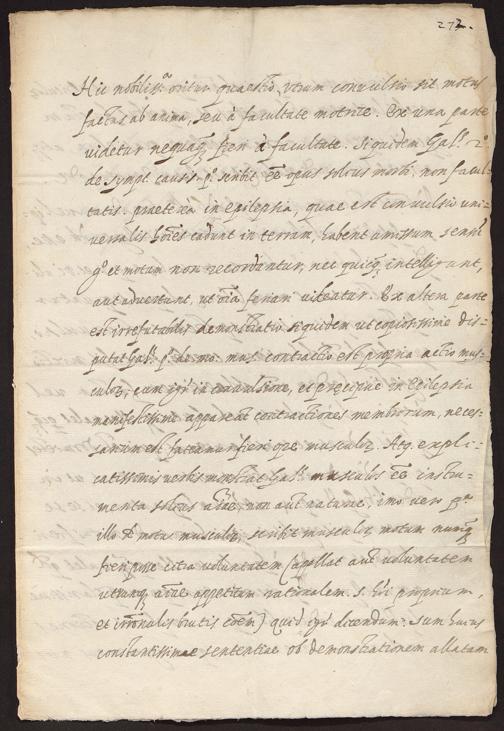 272.
Hic nobiliss.ª oritur quaestio, utrum convulsio sit motus
factus ab anima, seu à facultate motrice. Ex una parte
videtur nequaq₃ fieri à facultate. Siquidem Gal.ˢ 2.º
de sympt. causis scribit eē opus solius morbi, non facul-
tatis. praeterea in epilepsia, quae est convulsio uni-
versalis hōies cadunt in terram, habent amissum sensū
gº et motum non recordantur, nec quicq₃ intelligunt,
aut advertunt, ut oīa feriari videatur. Ex altera parte
est irrefutabilis demonstratio siquidem ut copiosissime dis-
putat Gal.ˢ pº de mo: mus: contractio est propria actio mus-
culoꝝ, cum igr in convulsione, et praecipue in epilepsia
manifestissime appareāt contractiones membrorum, neces-
sarium est fateamur fieri ope musculoꝝ. Atq₃ expli-
catissimis verbis monstrat Gal.ˢ musculos eē instru-
menta solius aīae, non aut naturae, imo vero
illo de motu musculoꝝ, scribit musculoꝝ motum nunq₃
fieri posse citra voluntatem (apellat aut voluntatem
utrumq₃ aīae appetitum rationalem. s. hōi proprium,
et irrōnalis brutis cōem) quid igr dicendum. Sum huius
constantissimae sententiae ob demonstrationem allatam